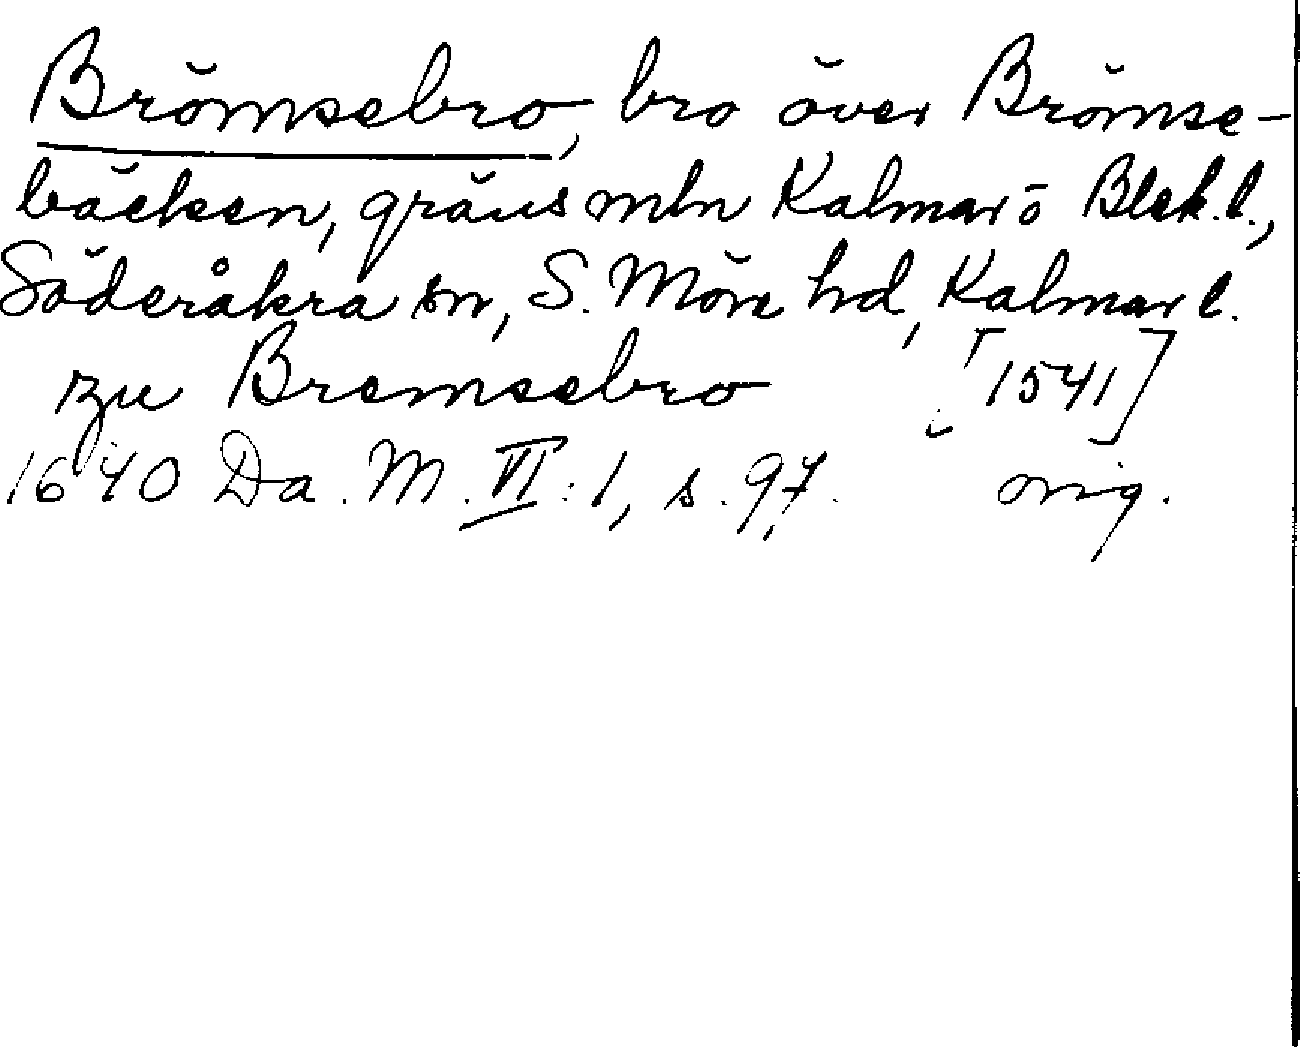 Brömsebro, bro över Brömse-
bäcken, gräns mln Kalmar o Blek. l.,
Söderåkra sn, S. Möre hd, Kalmar l.
zu Bremsebro [1541]
1640 Da. M. VI: 1, s. 97. orig.